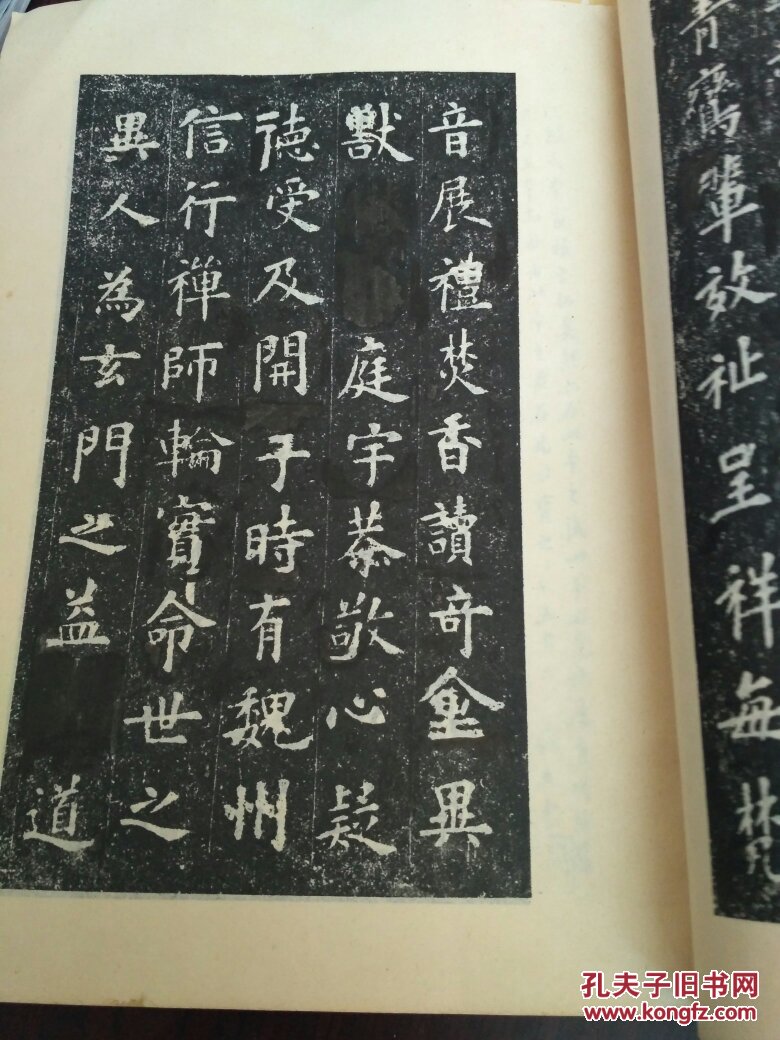 青鸞輩效祉呈祥每梵
音展禮焚香讀奇金異
獸庭宇恭敬心疑
徳受及開于時有魏州
信行禪師輪實命世之
異人為玄門之益
道
孔夫子旧书网
www.kongfz.com